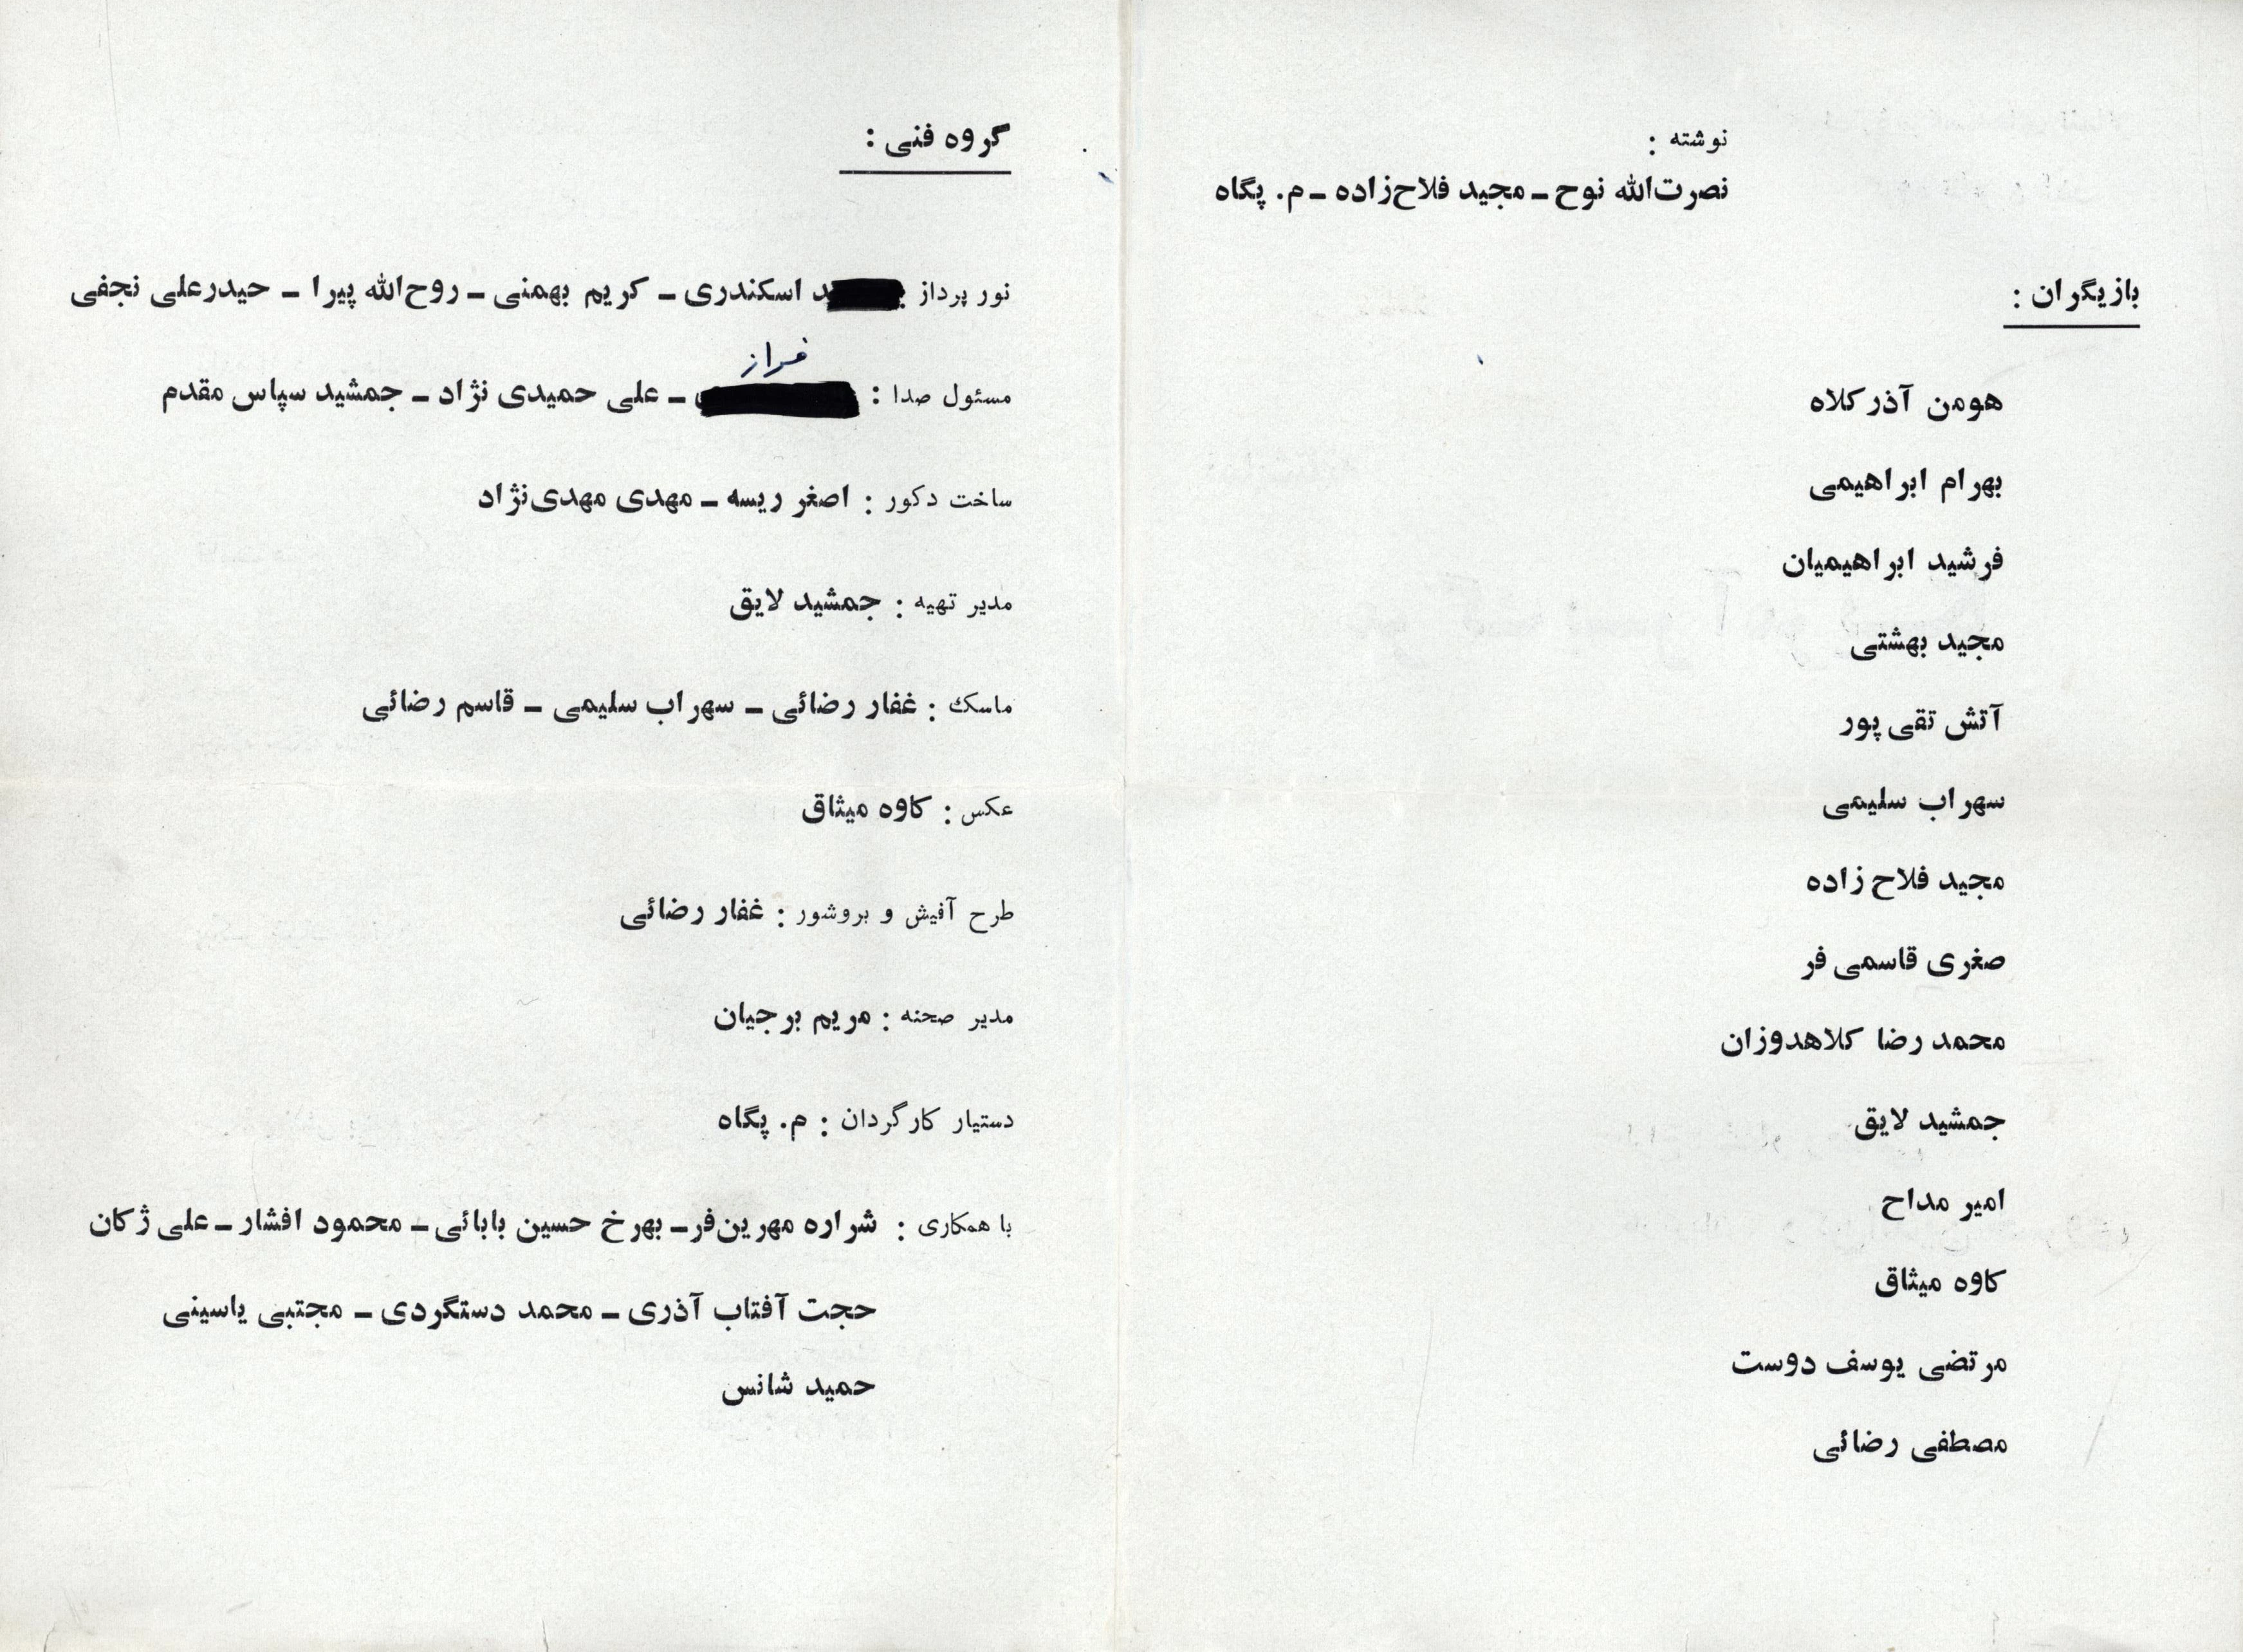 نوشته :
نصرت‌الله نوح ـ مجید فلاح‌زاده ـ م. پگاه
بازیگران :
هومن آذرکلاه
بهرام ابراهیمی
فرشید ابراهیمیان
مجید بهشتی
آتش تقی پور
سهراب سلیمی
مجید فلاح زاده
صغری قاسمی فر
محمد رضا کلاهدوزان
جمشید لایق
امیر مداح
کاوه میثاق
مرتضی یوسف دوست
مصطفی رضائی
گروه فنی :
نور پرداز : اسکندری ـ کریم بهمنی ـ روح‌الله پیرا ـ حیدرعلی نجفی
فراز
مسئول صدا : ـ علی حمیدی نژاد ـ جمشید سپاس مقدم
ساخت دکور : اصغر ریسه ـ مهدی مهدی‌نژاد
مدیر تهیه : جمشید لایق
ماسک : غفار رضائی ـ سهراب سلیمی ـ قاسم رضائی
عکس : کاوه میثاق
طرح آفیش و بروشور : غفار رضائی
مدیر صحنه : مریم برجیان
دستیار کارگردان : م. پگاه
با همکاری : شراره مهرین‌فر ـ بهرخ حسین بابائی ـ محمود افشار ـ علی ژکان
حجت آفتاب آذری ـ محمد دستگردی ـ مجتبی یاسینی
حمید شانس